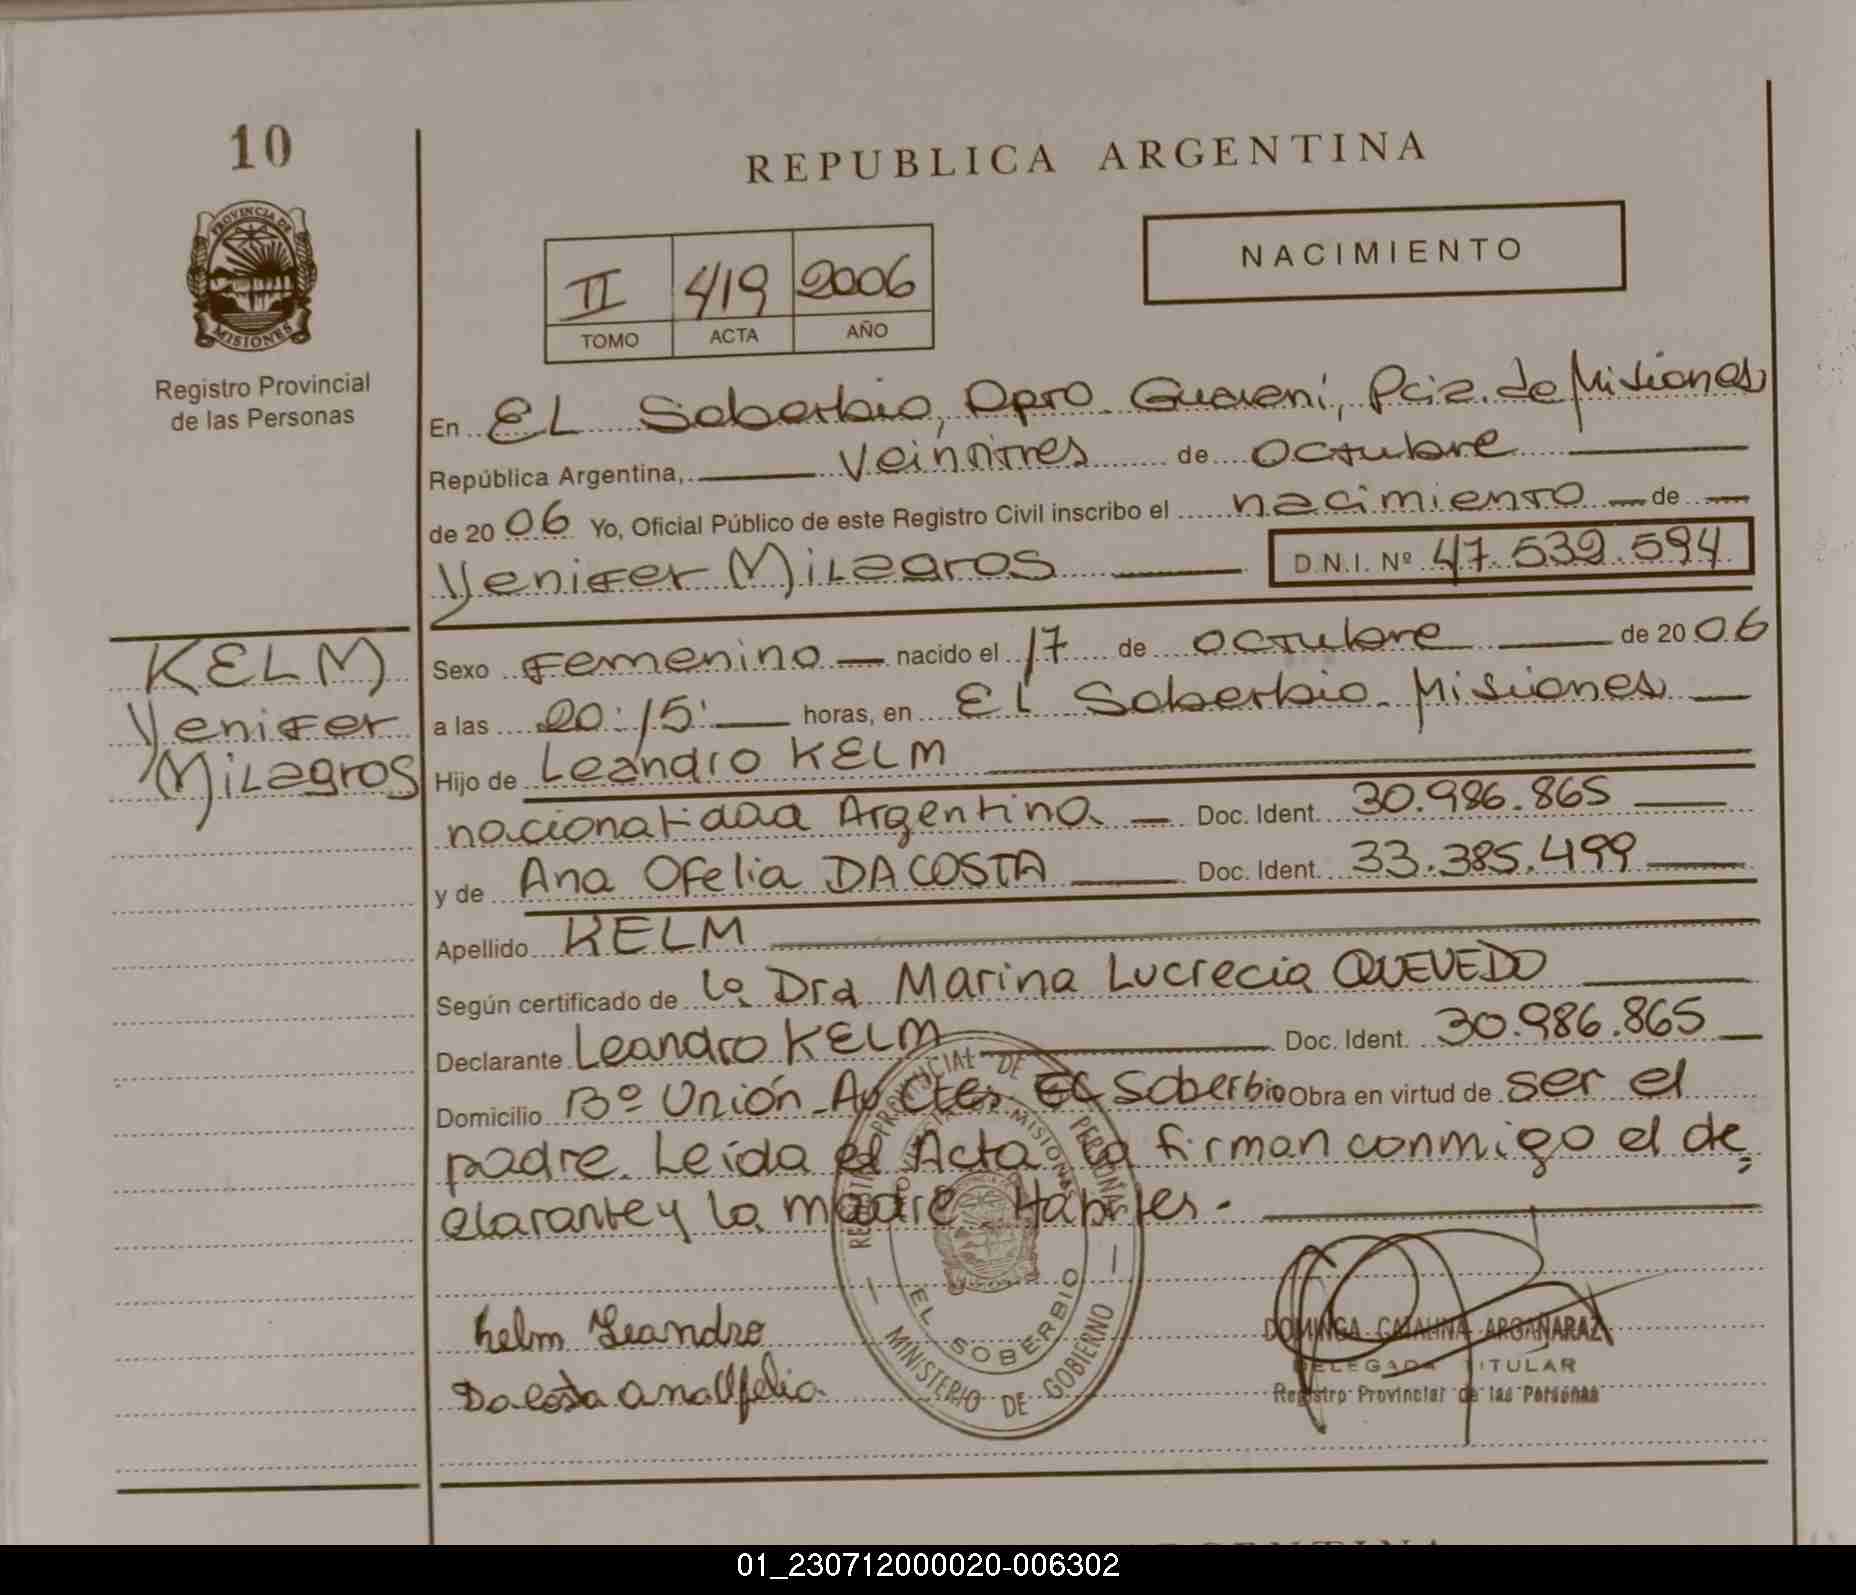 10
REPUBLICA ARGENTINA
PROVINCIA DE
MISIONES
Registro Provincial
de las Personas
NACIMIENTO
II 419 2006
TOMO ACTA AÑO
En EL Soberbio, Dpto. Guaraní, Pcia. de Misiones
República Argentina, veintitres de octubre
de 20 06 Yo, Oficial Público de este Registro Civil inscribo el nacimiento de
Yenifer Milagros D.N.I. Nº 47.532.594
KELM
Yenifer
Milagros
Sexo Femenino nacido el 17 de octubre de 20 06
a las 20:15' horas, en EL Soberbio. Misiones
Hijo de Leandro KELM
nacionalidad Argentina Doc. Ident. 30.986.865
y de Ana Ofelia DACOSTA Doc. Ident. 33.385.499
Apellido KELM
Según certificado de la Dra Marina Lucrecia QUEVEDO
Declarante Leandro KELM Doc. Ident. 30.986.865
Domicilio Bº Unión-Av Ctes. El Soberbio Obra en virtud de ser el
padre. Leída el Acta la firman conmigo el de
clarante y la madre. Habiles.-
REGISTRO PROVINCIAL DE LAS PERSONAS
MISIONES
EL SOBERBIO
MINISTERIO DE GOBIERNO
Kelm Leandro
Dacosta Ana Ofelia
DOMINGA CATALINA ARGAÑARAZ
DELEGADA TITULAR
Registro Provincial de las Personas
01_230712000020-006302